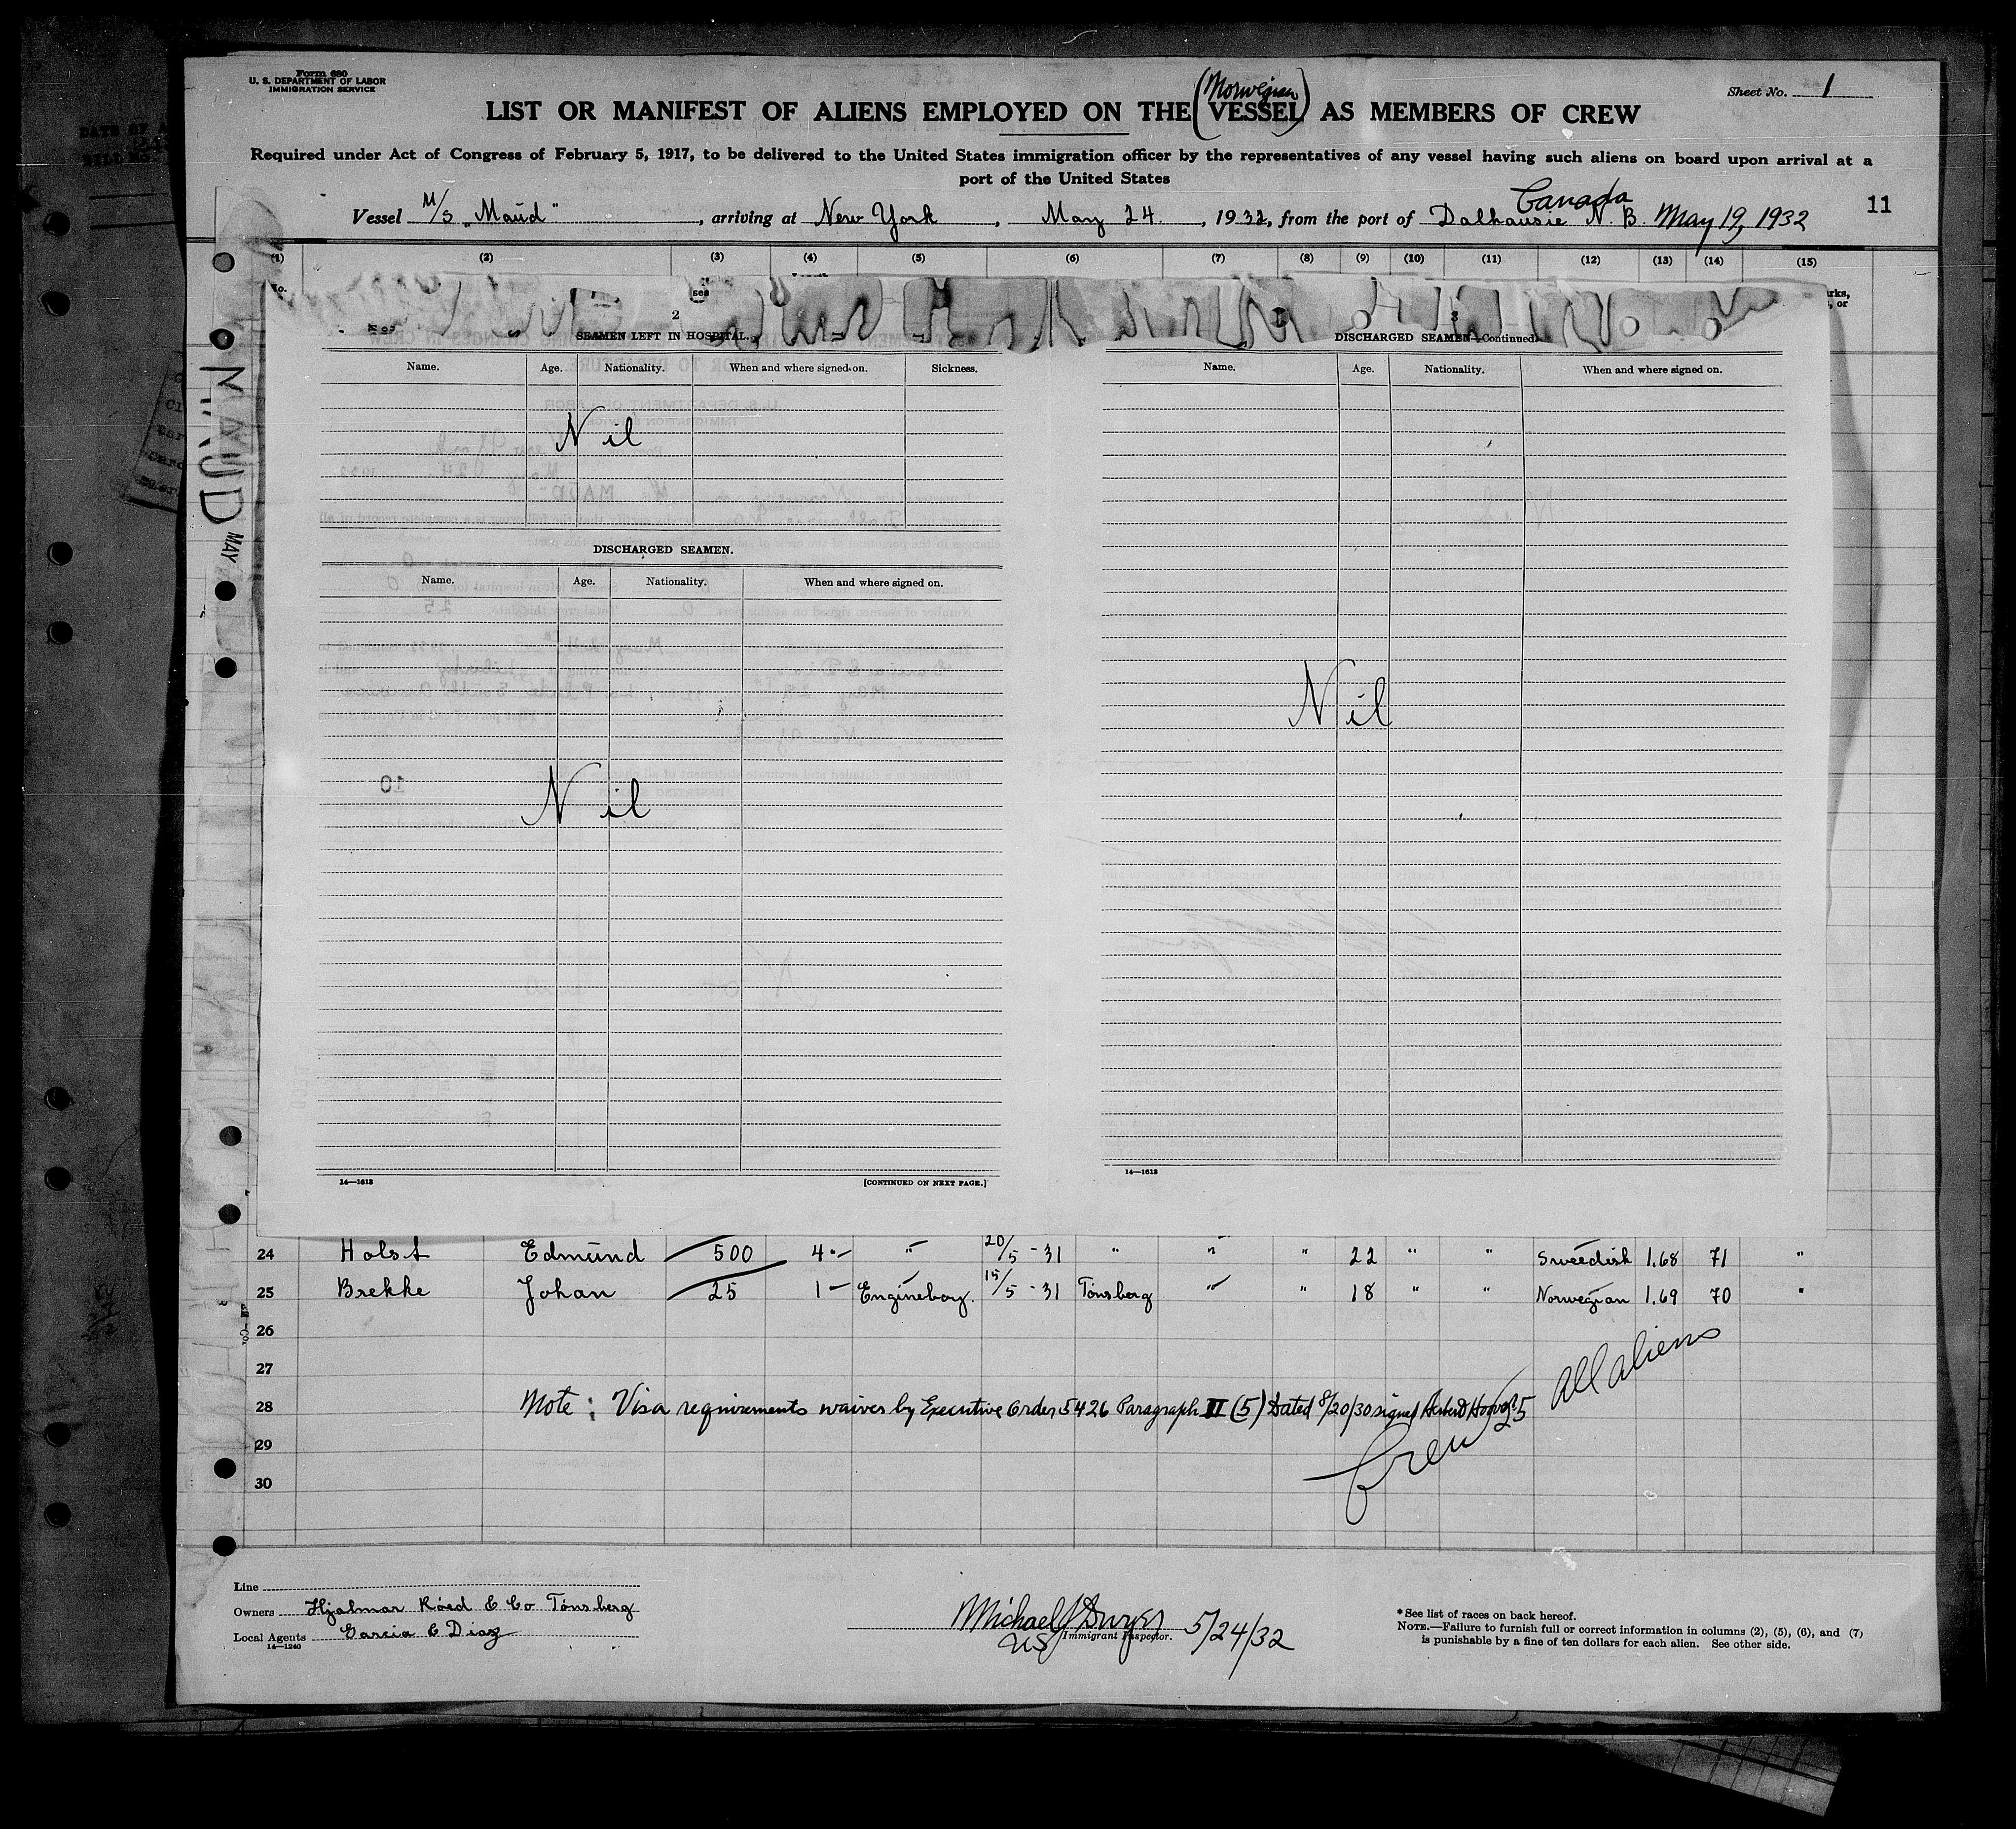 Form 680
U. S. DEPARTMENT OF LABOR
IMMIGRATION SERVICE
Sheet No. 1
(Norwegian)
LIST OR MANIFEST OF ALIENS EMPLOYED ON THE VESSEL AS MEMBERS OF CREW
Required under Act of Congress of February 5, 1917, to be delivered to the United States immigration officer by the representatives of any vessel having such aliens on board upon arrival at a
port of the United States
Canada
Vessel M/S „Maud", arriving at New York, May 24, 1932, from the port of Dalhousie N. B. May 19, 1932
11
(1) (2) (3) (4) (5) (6) (7) (8) (9) (10) (11) (12) (13) (14) (15)
2
SEAMEN LEFT IN HOSPITAL.
Name. Age. Nationality. When and where signed on. Sickness.
Nil
DISCHARGED SEAMEN.
Name. Age. Nationality. When and where signed on.
Nil
14—1613
[CONTINUED ON NEXT PAGE.]
3
DISCHARGED SEAMEN—Continued.
Name. Age. Nationality. When and where signed on.
Nil
14—1613
MAUD MAY
24 Holst Edmund 500 4 " 20/5 - 31 " " " 22 " " Swedish 1.68 71 "
25 Brekke Johan 25 1 Engineboy. 15/5 - 31 Tönsberg " " 18 " " Norwegian 1.69 70 "
26
27
28 Note: Visa requirements waiver by Executive Order 5426 Paragraph II (5) Dated 8/20/30 signed Herbert Hoover
29
30
Crew 25 All aliens
Line
Owners Hjalmar Röed & Co Tönsberg
Local Agents Garcia & Diaz
14—1240
Michael J Dwyer 5/24/32
US Immigrant Inspector.
* See list of races on back hereof.
NOTE.—Failure to furnish full or correct information in columns (2), (5), (6), and (7)
is punishable by a fine of ten dollars for each alien. See other side.